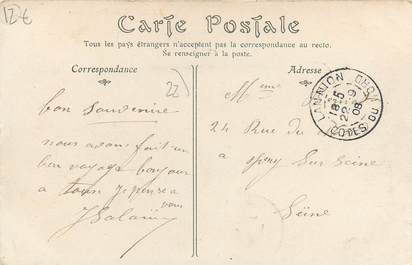 12€
Carte Postale
Tous les pays étrangers n'acceptent pas la correspondance au recto.
Se renseigner à la poste.
Correspondance
Adresse
22
bon Souvenire
nous avons fait un
bon voyage bonjour
a tous je pense a
vous
JSalaün
Mme
24 Rue du
a epeny Sur Seine
Seine
LANNION
18-5
22-9
08
COTES DU NORD